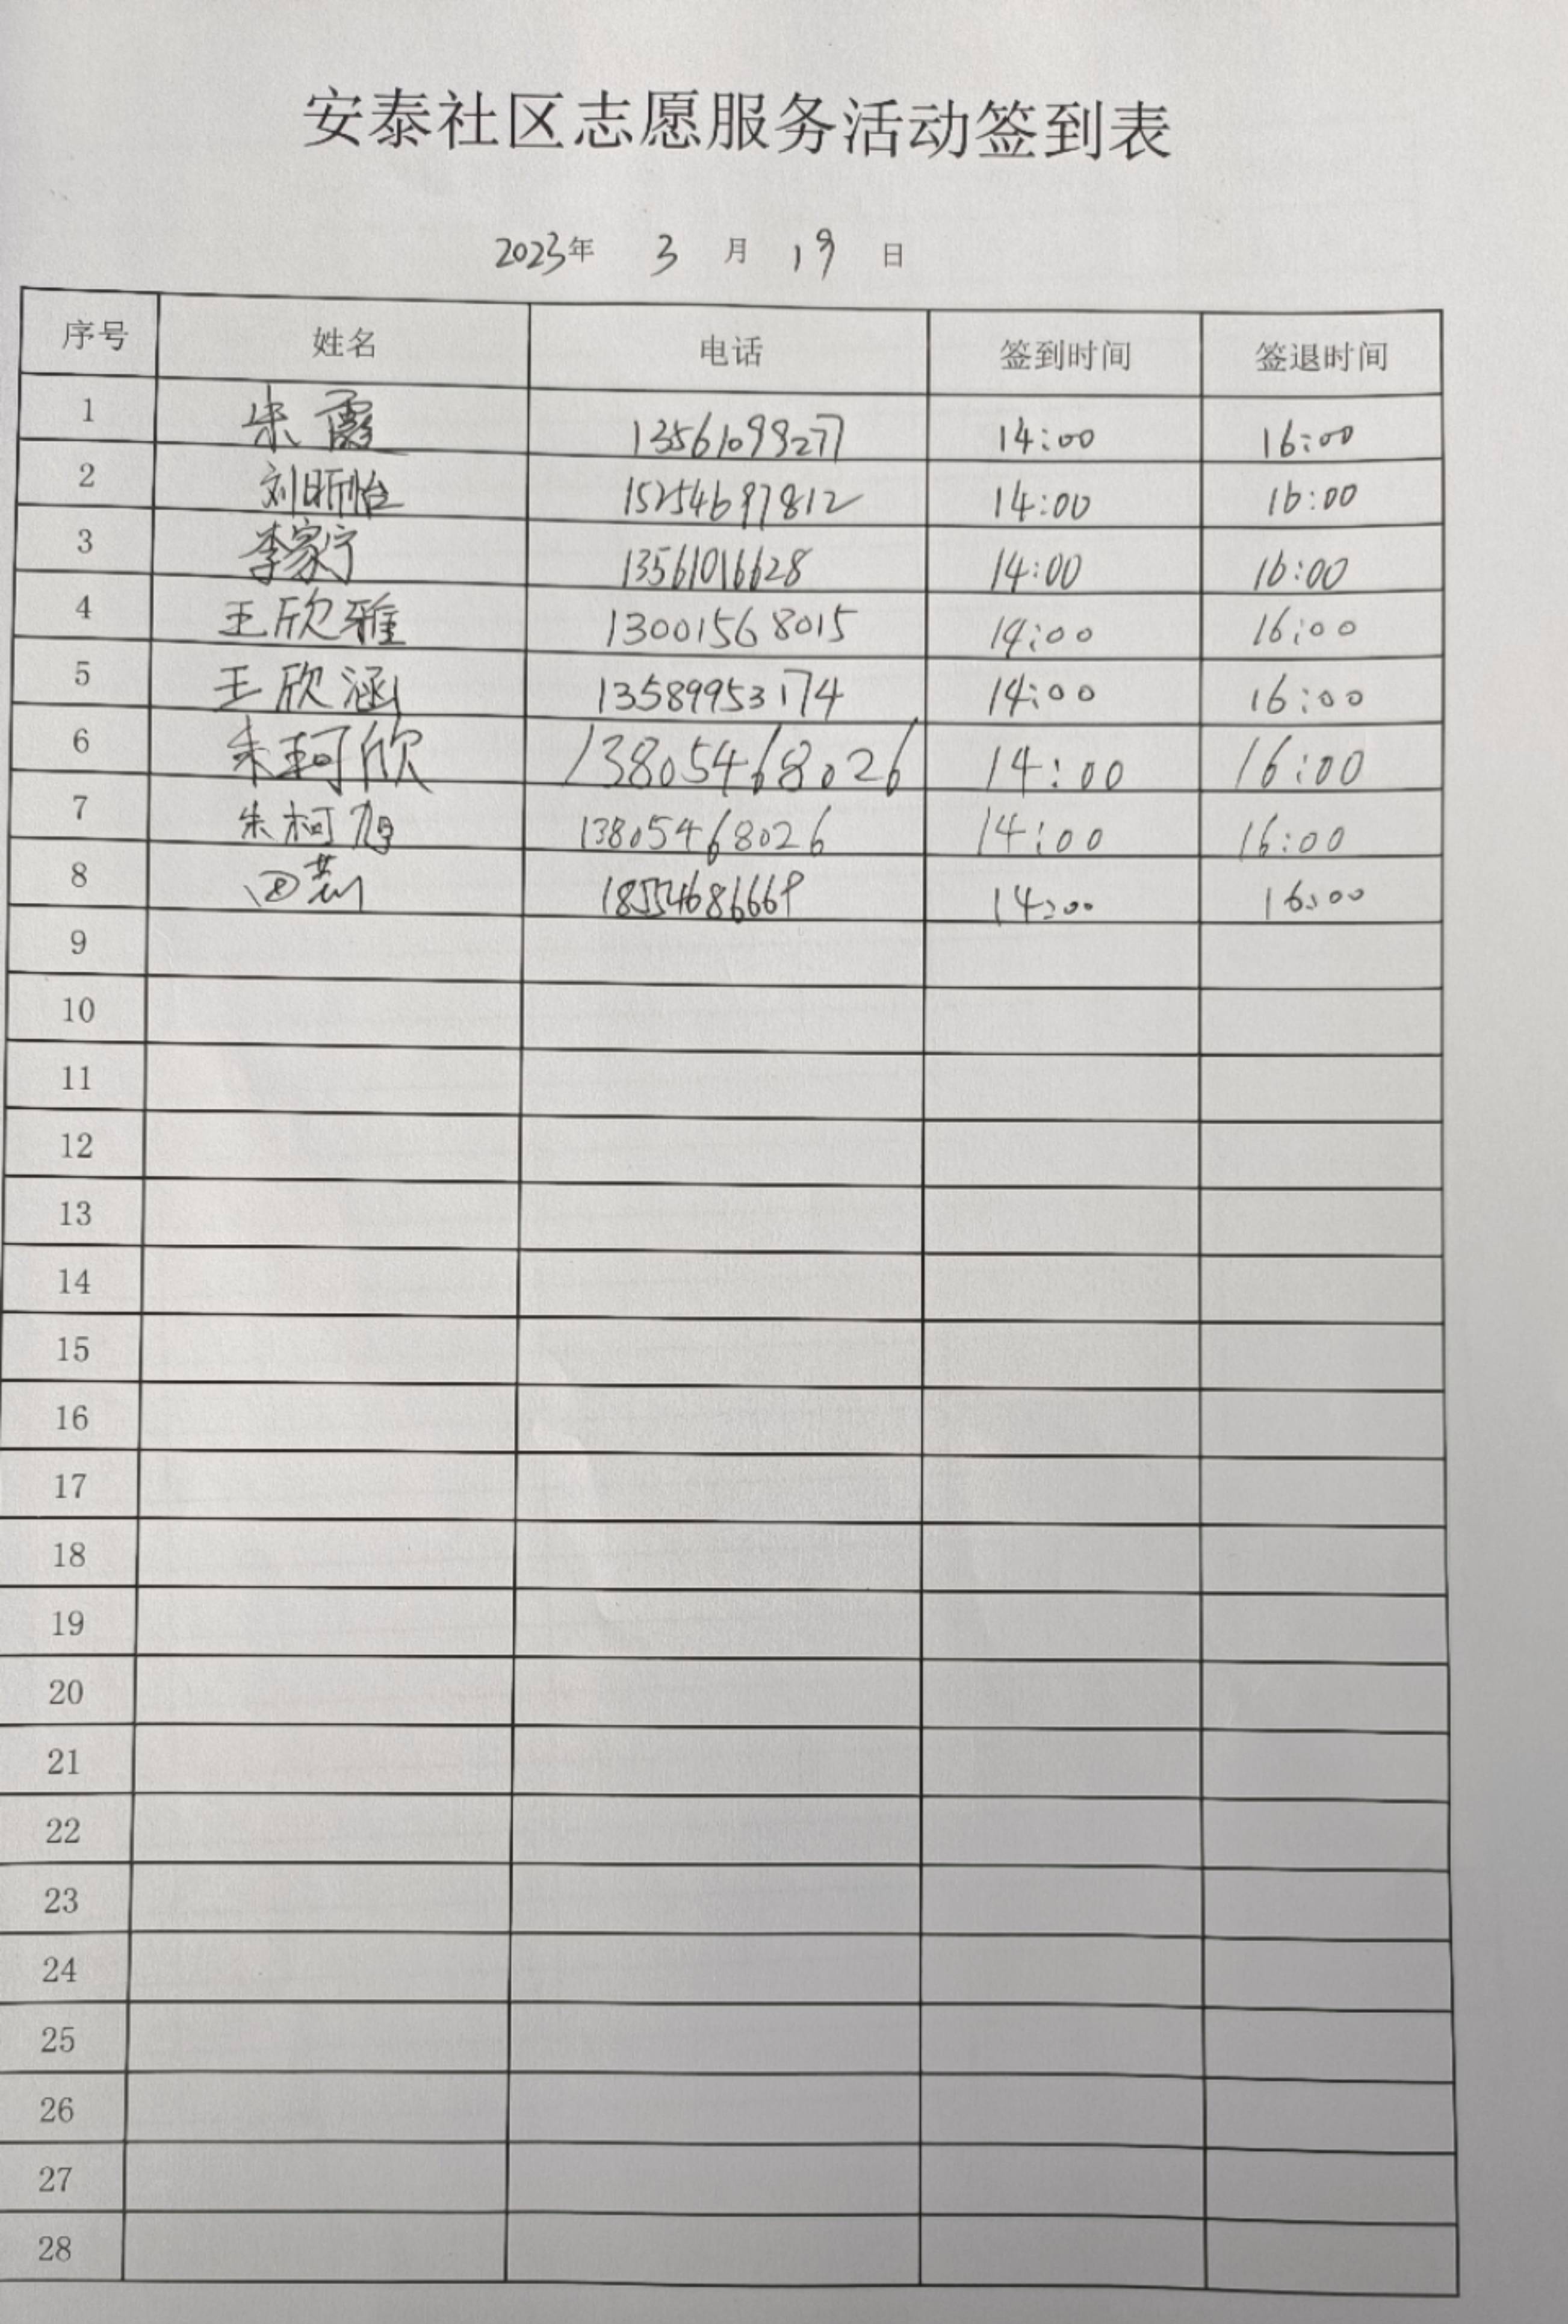 安泰社区志愿服务活动签到表
2023年 3 月 19 日
序号 姓名 电话 签到时间 签退时间
1 朱霞 13561099277 14:00 16:00
2 刘昕怡 15254697812 14:00 16:00
3 李家宁 13561016628 14:00 16:00
4 王欣雅 13001568015 14:00 16:00
5 王欣涵 13589953174 14:00 16:00
6 朱珂欣 13805468026 14:00 16:00
7 朱柯旭 13805468026 14:00 16:00
8 18554686669 14:00 16:00
9
10
11
12
13
14
15
16
17
18
19
20
21
22
23
24
25
26
27
28